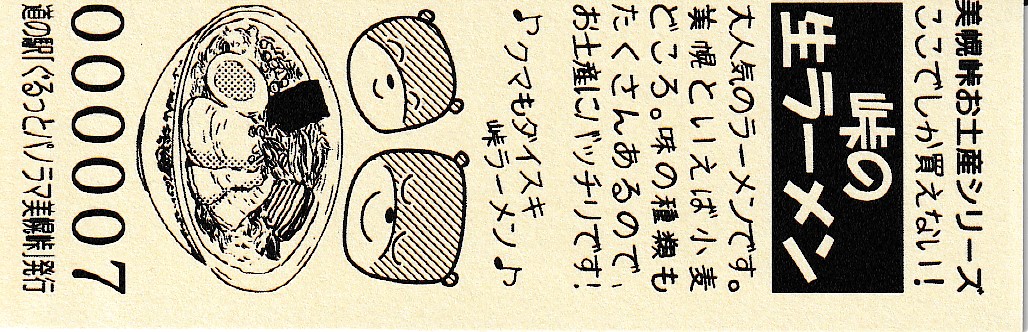 美幌峠お土産シリーズ
ここでしか買えない!!
峠の
生ラーメン
大人気のラーメンです。
美幌といえば小麦
どころ。味の種類も
たくさんあるので、
お土産にバッチリです!
♪クマもダイスキ
峠ラーメン♪
000007
道の駅「ぐるっとパノラマ美幌峠」発行